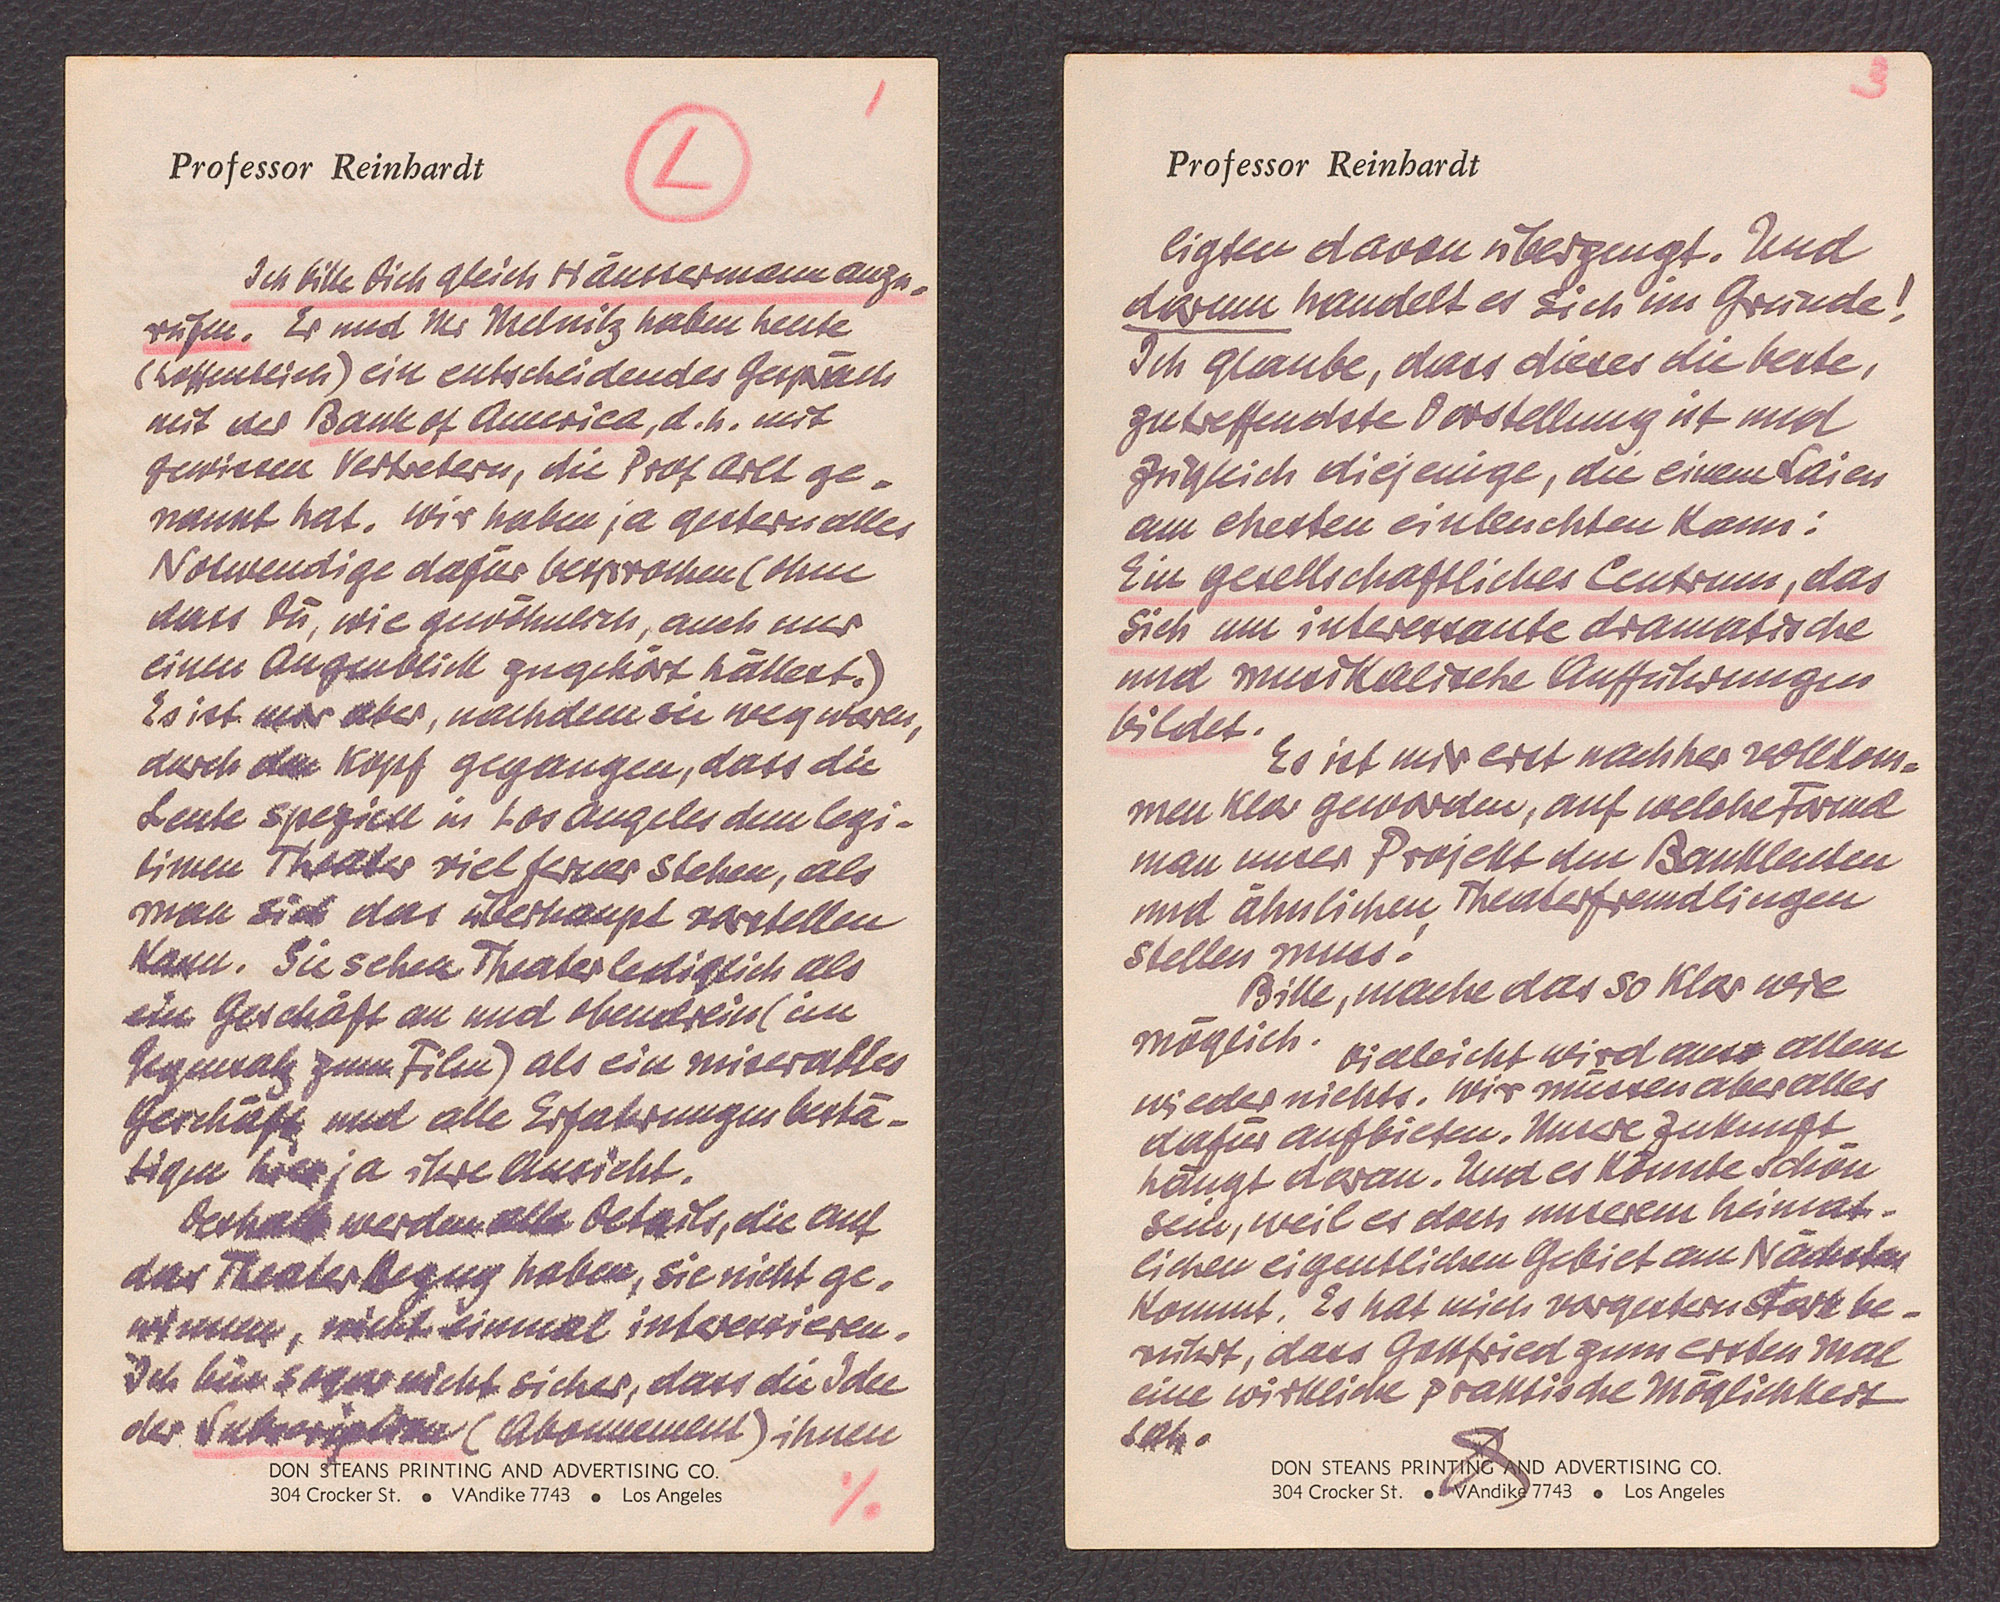 1
L
Professor Reinhardt
Ich bitte Dich gleich Häussermann anzu-
rufen. Er und Mr Melnitz haben heute
(hoffentlich) ein entscheidendes Gespräch
mit der Bank of America, d.h. mit
gewissen Vertretern, die Prof Arlt ge-
nannt hat. Wir haben ja gestern alles
Notwendige dafür besprochen (ohne
dass Du, wie gewöhnlich, auch nur
einen Augenblick zugehört hättest.)
Es ist mir aber, nachdem sie weg waren,
durch den Kopf gegangen, dass die
Leute speziell in Los Angeles dem legi-
timen Theater viel ferner stehen, als
man sich das überhaupt vorstellen
kann. Sie sehen Theater lediglich als
ein Geschäft an und obendrein (im
Gegensatz zum Film) als ein miserables
Geschäft und alle Erfahrungen bestä-
tigen hier ja ihre Ansicht.
Deshalb werden alle Details, die auf
das Theater Bezug haben, sie nicht ge-
winnen, nicht einmal interessieren.
Ich bin sogar nicht sicher, dass die Idee
der Subscription (Abonnement) ihnen
DON STEANS PRINTING AND ADVERTISING CO.
304 Crocker St. • VAndike 7743 • Los Angeles
./.
3
Professor Reinhardt
ligten davon überzeugt. Und
darum handelt es sich im Grunde!
Ich glaube, dass dieses die beste,
zutreffendste Vorstellung ist und
zugleich diejenige, die einem Laien
am ehesten einleuchten kann:
Ein gesellschaftliches Centrum, das
sich um interessante dramatische
und musikalische Aufführungen
bildet.
Es ist mir erst nachher vollkom-
men klar geworden, auf welche Formel
man unser Projekt den Bankleuten
und ähnlichen Theaterfremdlingen
stellen muss!
Bitte, mache das so klar wie
möglich.
Vielleicht wird aus allem
wieder nichts. Wir müssen aber alles
dafür aufbieten. Unsere Zukunft
hängt daran. Und es könnte schön
sein, weil es doch unserem heimat-
lichen eigentlichen Gebiet am Nächsten
kommt. Es hat mich vorgestern stark be-
rührt, dass Gottfried zum ersten Mal
eine wirkliche praktische Möglichkeit
sah.
DON STEANS PRINTING AND ADVERTISING CO.
304 Crocker St. • VAndike 7743 • Los Angeles